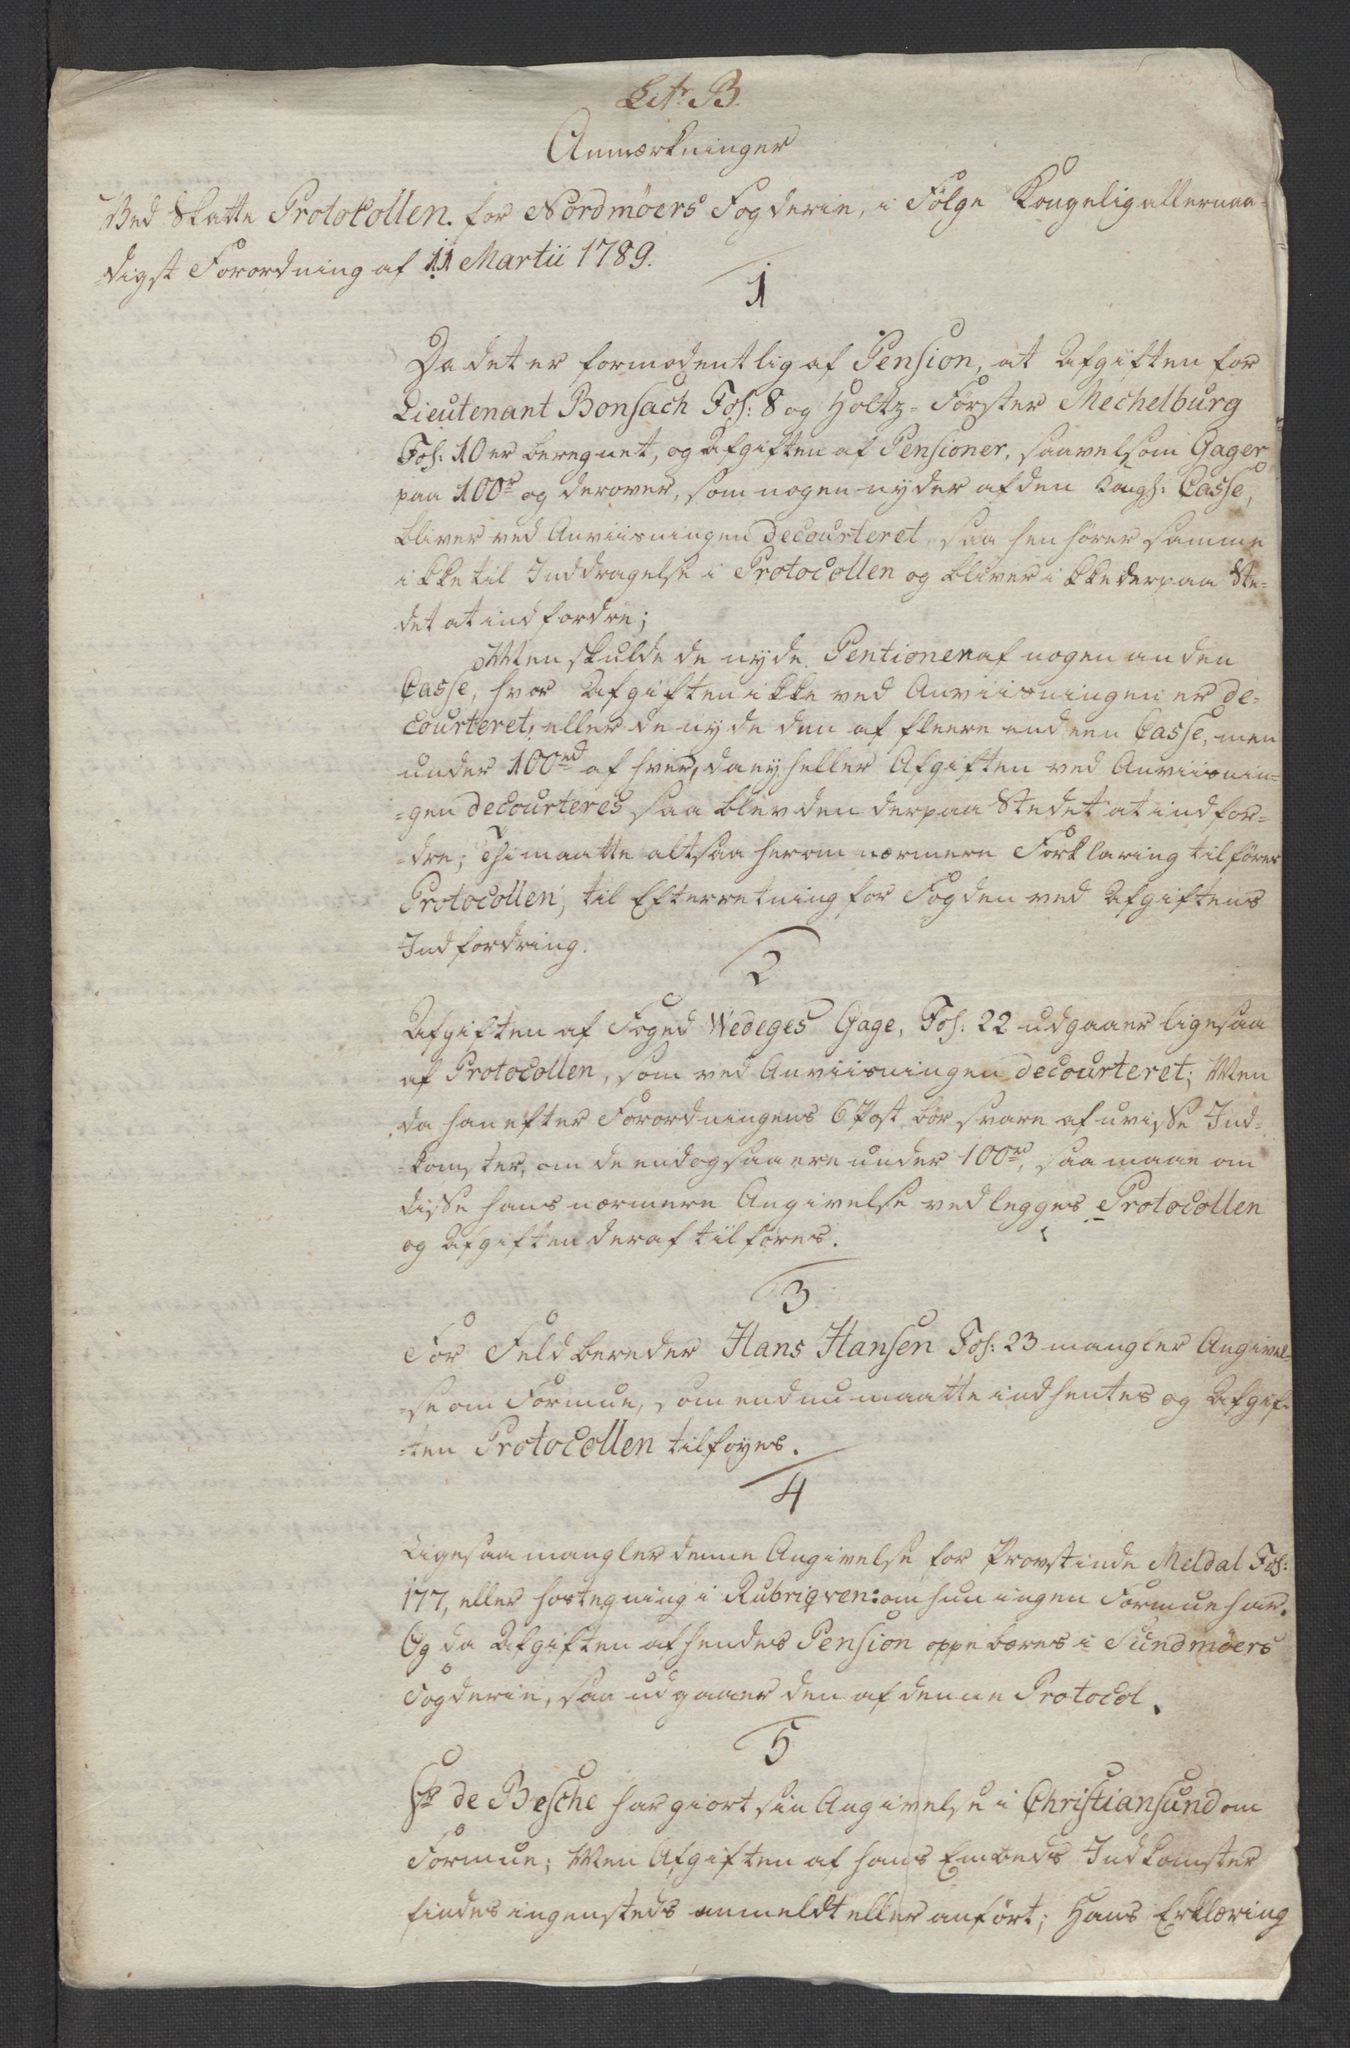 Litr. B.
Anmærkninger
Ved Skatte Protokollen for Nordmøers Fogderie, i Følge Kongelig allernaa-
digst Forordning af 11 Martii 1789.
1
Da det er formodentlig af Pension, at Afgiften for
Lieutenant Bonsach Fol: 8 og Holtz-Førster Mechelburg
Fol: 10 er beregnet, og Afgiften af Pensioner, saavelsom Gager
paa 100r og derover, som nogen nyder af den Kongl: Casse,
bliver ved Anviisningen decourteret, saa henhører samme
ikke til Inddragelse i Protocollen og bliver ikke der paa Ste-
det at indfordre;
Men skulde de nyde Pentioner af nogen anden
Casse, hvor Afgiften ikke ved Anviisningen er de-
courteret, eller de nyde den af fleere end een Casse, men
under 100rd af hver, da ey heller Afgiften ved Anviisnin-
-gen decourteres saa blev den der paa Stedet at indfor-
-dre; Thi maatte altsaa herom nærmere Forklaring tilføres
Protocollen, til Efterretning for Fogden ved Afgiftens
Indfordring.
2
Afgiften af Foged Wedeges Gage, Fol: 22 udgaaer ligesaa
af Protocollen, som ved Anviisningen decourteret; Men
da han efter Forordningens 6 Post bør svare af uvisse Ind-
-komster, om de endog saa ere under 100rd, saa maae om
disse hans nærmere Angivelse vedlegges Protocollen
og Afgiften deraf tilføres.
3
For Feldbereder Hans Hansen Fol: 23 mangler Angivel-
-se om Formue, som endnu maatte indhentes og Afgif-
-ten Protocollen tilføyes.
4
Ligesaa mangler denne Angivelse for Provstinde Meldal Fol:
177, eller hostegning i Rubriqven: om hun ingen Formue har.
Og da Afgiften af hendes Pension oppebæres i Sundmøers
Fogderie, saa udgaaer den af denne Protocol.
5
Hr de Besche har giort sin Angivelse i Christiansund om
Formue; Men Afgiften af hans Embeds Indkomster
findes ingensteds anmeldt eller anført; Hans Erklæring